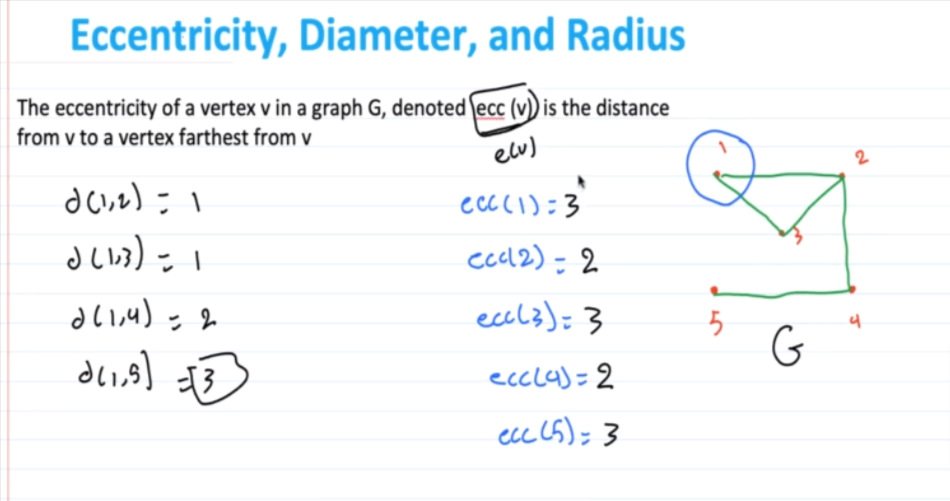 Eccentricity, Diameter, and Radius
The eccentricity of a vertex v in a graph G, denoted ecc (v) is the distance
from v to a vertex farthest from v
e(v)
d(1,2) = 1
d(1,3) = 1
d(1,4) = 2
d(1,5) = 3
ecc(1) = 3
ecc(2) = 2
ecc(3) = 3
ecc(4) = 2
ecc(5) = 3
1
2
3
5
4
G